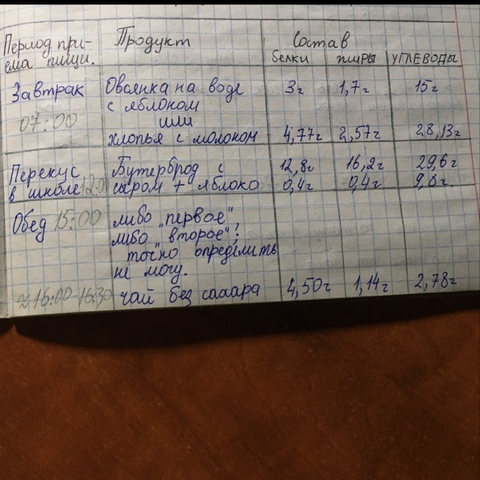 Период при- Продукт Состав
ема пищи. белки жиры углеводы
Завтрак Овсянка на воде 3г 1,7г 15г
07:00 с яблоком
или
хлопья с молоком 4,77г 2,57г 28,13г
Перекус Бутерброд с 12,8г 16,2г 29,6г
в школе 12:00 сыром + яблоко 0,4г 0,4г 9,8г.
Обед 15:00 либо "первое"
либо "второе";
точно определить
не могу.
≈16:00-16:30 чай без сахара 4,50г 1,14г 2,78г